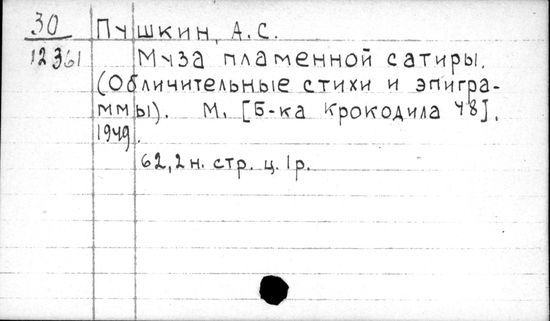 30 Пушкин, А.С.
12361 Муза пламенной сатиры.
(Обличительные стихи и эпигра-
ммы). М. [Б-ка Крокодила 48].
1949.
62,2н. стр. ц. 1р.